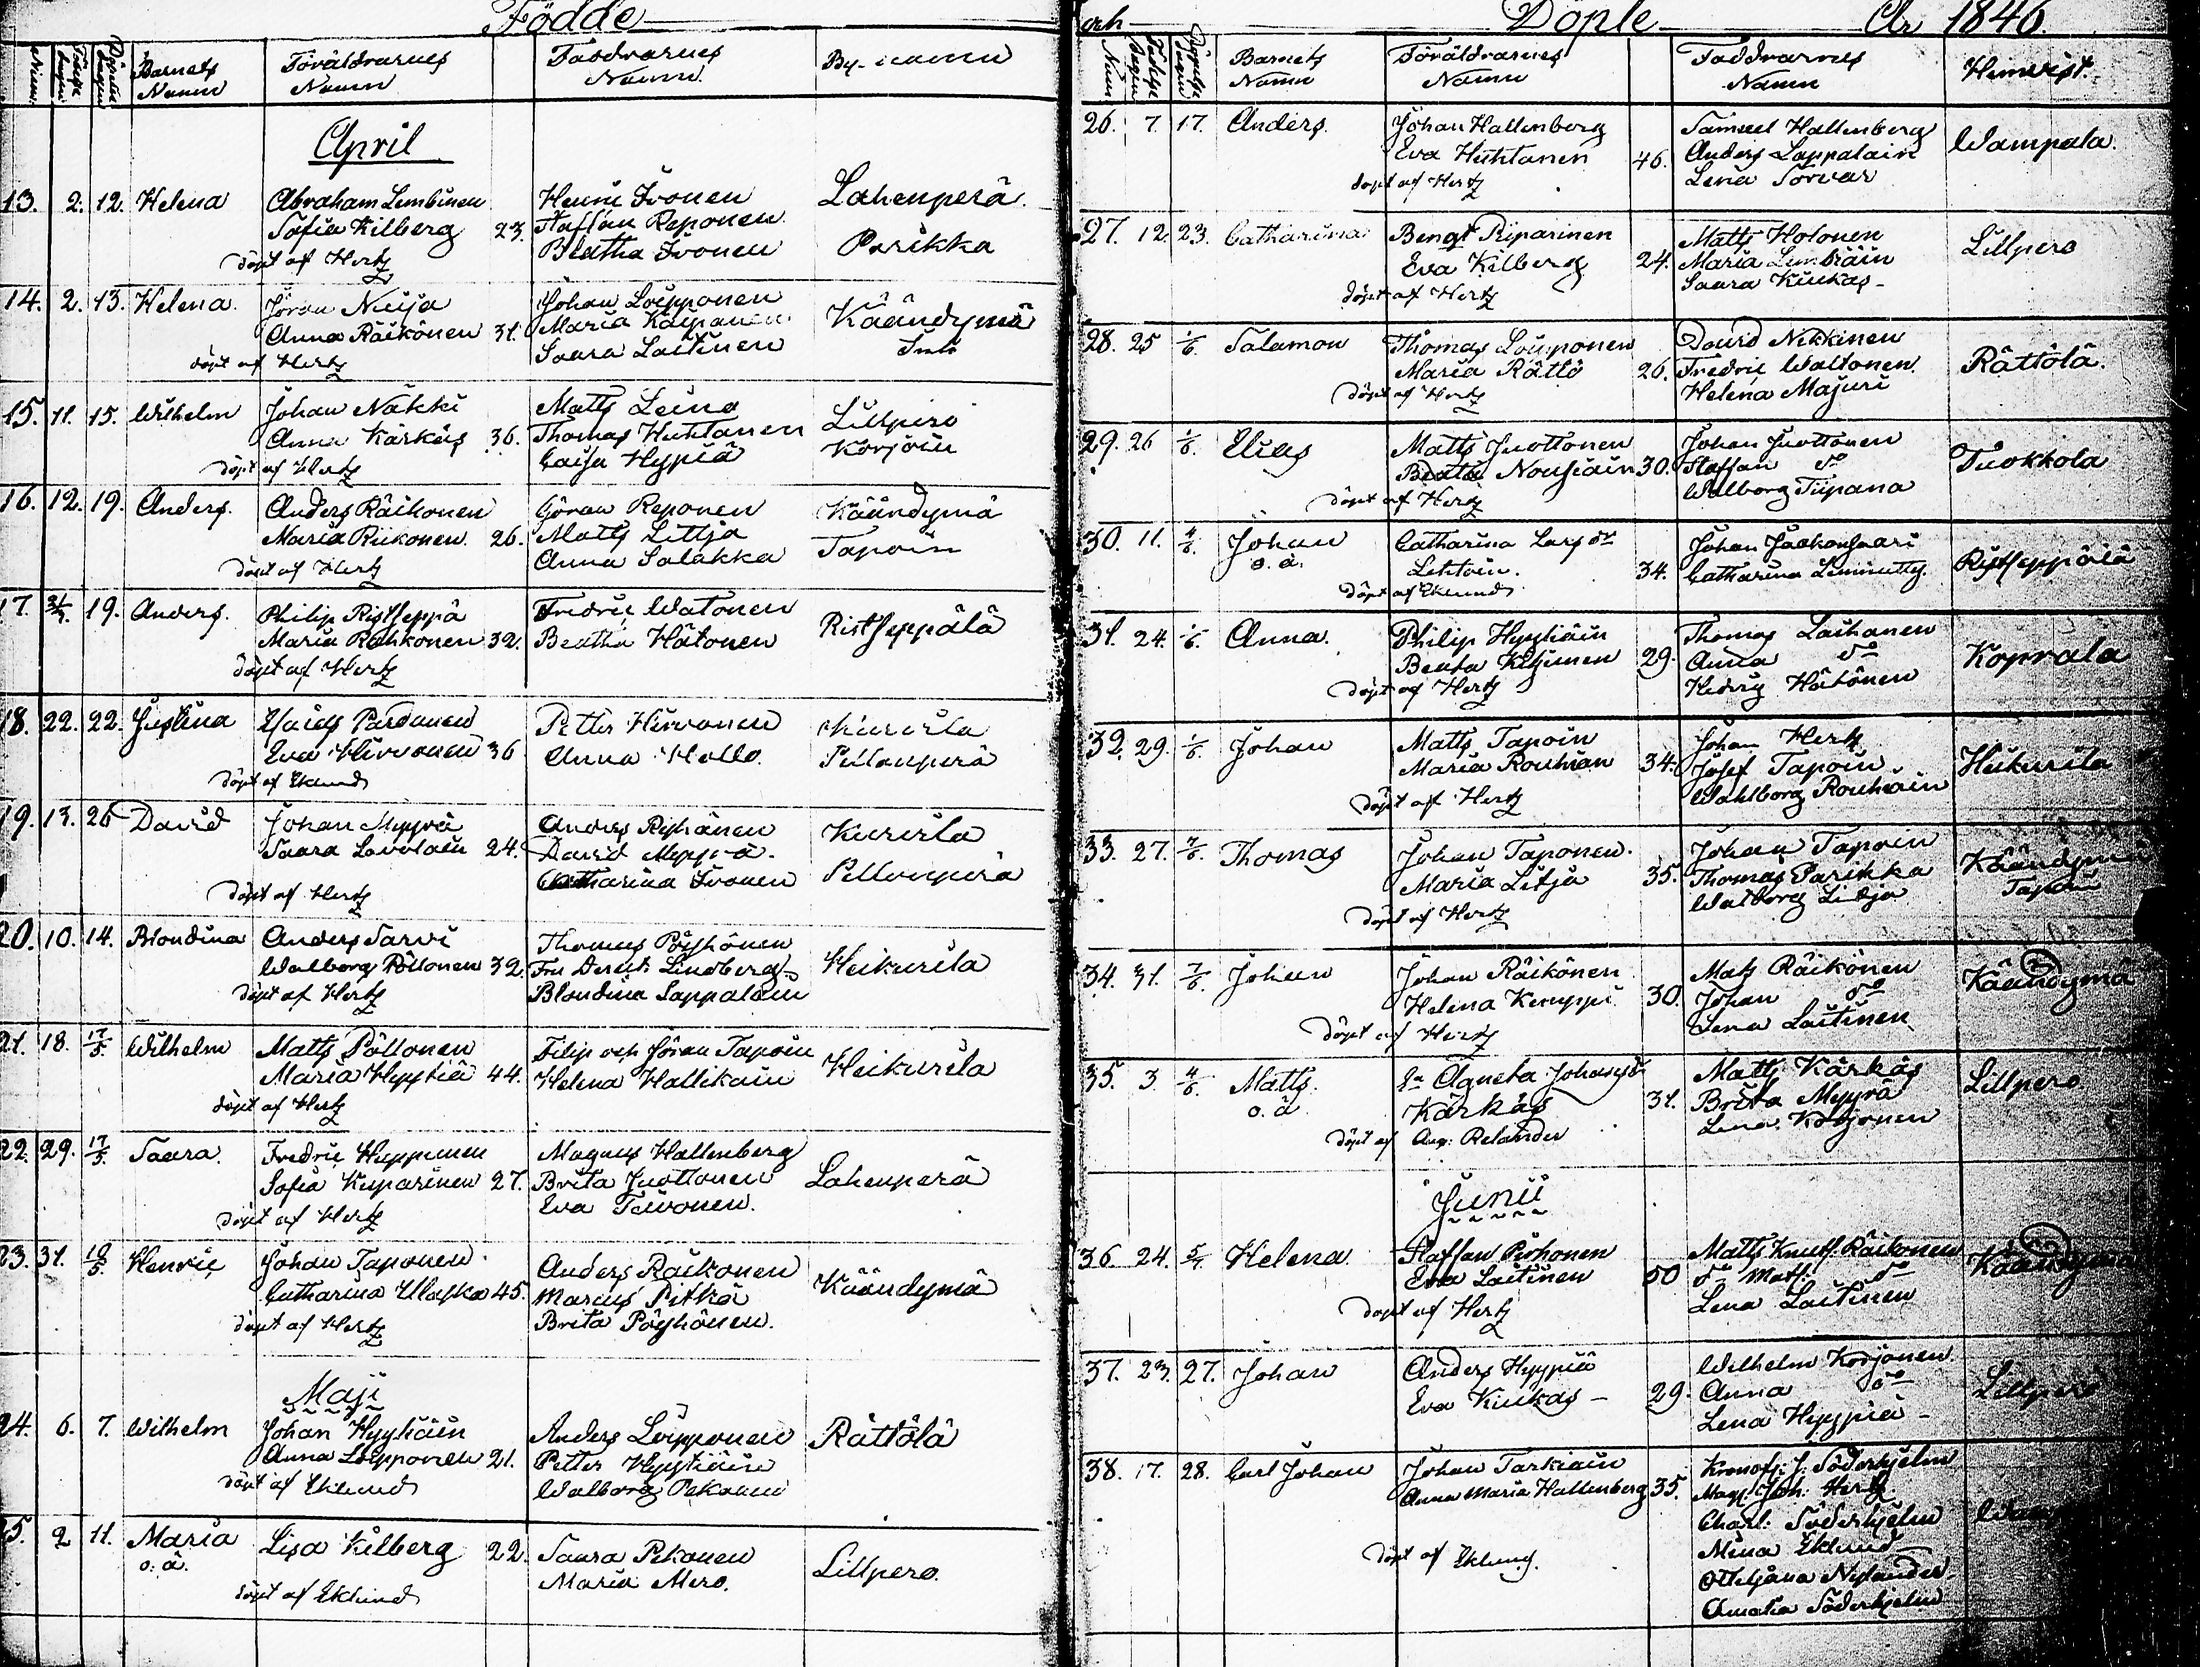 Födde
Num. Födelse dagen Döpelse dagen Barnets Namn Föräldrarnes Namn Faddrarnes Namn By-namn
April
13. 2. 12. Helena Abraham Lembinen Henric Ivonen Lahenperä
Sofia Kilberg 23. Staffan Reponen
döpt af Hertz Beatha Ivonen Parikka
14. 2. 13. Helena Jöran Nuija Johan Loipponen Käändymä
Anna Räikönen 31. Maria
döpt af Hertz Saara Laitinen
15. 11. 15. Wilhelm Johan Näkki Matts Leino Lillpero
Anna Kärkäs 36. Thomas Huhtanen Korjoin
döpt af Hertz Caisa Hypiä
16. 12. 19. Anders Anders Räikonen Göran Reponen Käändymä
Maria Riikonen 26. Matts Littja Tapoin
döpt af Hertz Anna Salakka
17. 19. Anders Philip Ristseppä Fredric Watonen Ristseppälä
Maria Rahkonen 32. Beatha Hätonen
döpt af Hertz
18. 22. 22. Justina Pardanen Petter Hirvonen Kurisila
Eva Hirvonen 36 Anna Hello Pellonperä
döpt af Eklund
19. 13. 26 David Johan Myyrä Anders Ryhänen Kurisila
Saara Lavolain 24. David Myyrä
döpt af Hertz Catharina Ivonen Pellonperä
20. 10. 14. Blondina Anders Sarvi Thomas Pöyhönen Heikurila
Walborg Pöllonen 32. Fru Lindberg
döpt af Hertz Blondina Lappalain
21. 18. 17/5 Wilhelm Matts Pöllonen Filip och Jöran Tapoin Heikurila
Maria Hyytiä 44. Helena Hallikain
döpt af Hertz
22. 29. 17/5 Saara Fredric Huppunen Magnus Hallenberg
Sofia Kuparinen 27. Brita Juottonen Lahenperä
döpt af Hertz Eva Toivonen
23. 31. 18/5 Henric Johan Taponen Anders Räikonen
Catharina Ulaska 45. Marcus Pitkä Käändymä
döpt af Hertz Brita Pöyhönen
Maji
24. 6. 7. Wilhelm Johan Hyytiäin Anders Loipponen Rättölä
Anna Loipponen 21. Petter Hyytiäin
döpt af Eklund Walborg Pekonen
25. 2 11. Maria Lisa Kilberg 22. Saara Pekonen Lillpero
o. ä. Maria Mero
döpt af Eklund
och Döpte År 1846
Num. Födelse dagen Döpelse dagen Barnets Namn Föräldrarnes Namn Faddrarnes Namn Hemvist
26. 7. 17. Anders. Johan Hallenberg Samuel Hallenberg Wampala.
Eva Huhtanen 46. Anders Lappalain
döpt af Hertz Lena Torvar
27. 12. 23. Catharina Bengt Riparinen Matts Holonen Lillpero
Eva Kilberg 24. Maria Lembiäin
döpt af Hertz Saara Kiukas
28. 25 1/6 Salamon Thomas Loipponen David Nikkinen Rättölä.
Maria Rättö 26. Fredric Waltonen
döpt af Hertz Helena Majuri
29. 26 1/6 Elias Matts Juottonen Johan Juottonen Tuokkola
Beata Nousiain 30. Staffan do
döpt af Hertz Walborg Tiipana
30. 11. 4/6 Johan Catharina Larsdr Johan Ristseppälä
o. ä. Lehtoin. 34. Catharina
döpt af Eklund
31. 24. 1/6 Anna. Philip Hyytiäin Thomas Laihanen Koprala
Beata 29. Anna do
döpt af Hertz Hedvig Hätönen
32. 29. 1/6 Johan Matts Tapoin Johan Hertz Heikurila
Maria Rouhiain 34. Josef Tapoin
döpt af Hertz Wahlborg Rouhiain
33. 27. 7/6 Thomas Johan Taponen. Johan Tapoin Käändymä
Maria Litja 35. Thomas Parikka Tapoin
döpt af Hertz Walborg Litja
34. 31. 7/6 Johan Johan Räikönen Mats Räikönen Käändymä
Helena Kemppi 30. Johan do
döpt af Hertz Lena Laitinen
35. 3. 4/6 Matts. Agneta Johansdr Matts Kärkäs Lillpero
o. ä. Kärkäs 31. Brita Myyrä
döpt af Aug: Relander Lena Korjonen
Junii
36 24. 5/7 Helena Staffan Pirhonen Matts Knuts. Räikonen Käändymä
Eva Laitinen 50 do Mats. do
döpt af Hertz Lena Laitinen
37. 23. 27. Johan Anders Hyypiä Wilhelm Korjonen Lillpero
Eva Kiukas 29. Anna do
Lena Hyypiä
38. 17. 28. Carl Johan Johan Tarkiain Kronof: J. Söderhjelm
Anna Maria Hallenberg 35. Mag. Joh. Hertz
Charl. Söderhjelm
döpt af Eklund. Mina Eklund
Ottiliana Nylander
Amalia Söderhjelm